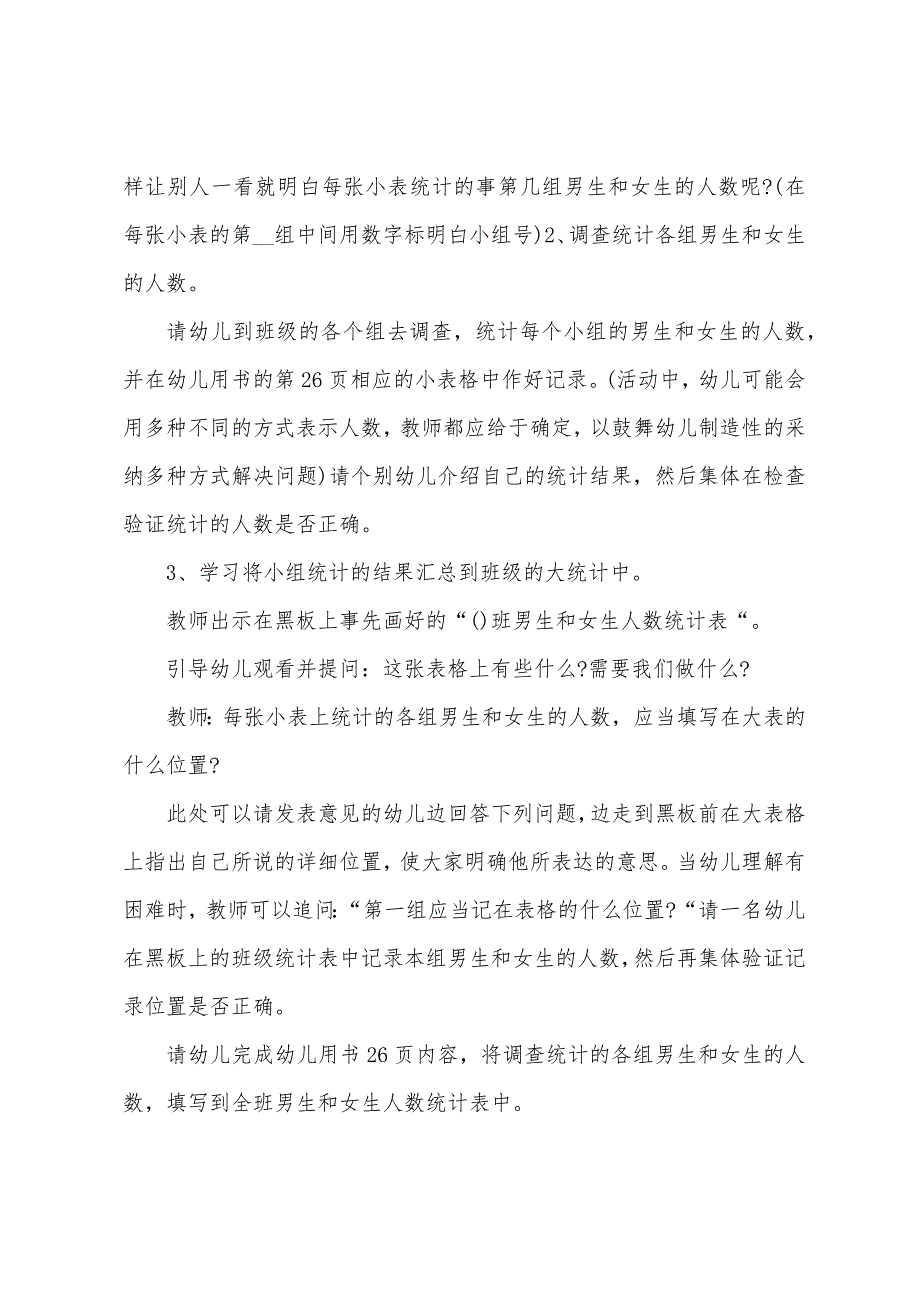 样让别人一看就明白每张小表统计的事第几组男生和女生的人数呢?(在
每张小表的第__组中间用数字标明白小组号)2、调查统计各组男生和女生
的人数。
请幼儿到班级的各个组去调查，统计每个小组的男生和女生的人数，
并在幼儿用书的第26页相应的小表格中作好记录。(活动中，幼儿可能会
用多种不同的方式表示人数，教师都应给于确定，以鼓舞幼儿制造性的采
纳多种方式解决问题)请个别幼儿介绍自己的统计结果，然后集体在检查
验证统计的人数是否正确。
3、学习将小组统计的结果汇总到班级的大统计中。
教师出示在黑板上事先画好的“()班男生和女生人数统计表“。
引导幼儿观看并提问：这张表格上有些什么?需要我们做什么?
教师：每张小表上统计的各组男生和女生的人数，应当填写在大表的
什么位置?
此处可以请发表意见的幼儿边回答下列问题，边走到黑板前在大表格
上指出自己所说的详细位置，使大家明确他所表达的意思。当幼儿理解有
困难时，教师可以追问：“第一组应当记在表格的什么位置?“请一名幼儿
在黑板上的班级统计表中记录本组男生和女生的人数，然后再集体验证记
录位置是否正确。
请幼儿完成幼儿用书26页内容，将调查统计的各组男生和女生的人
数，填写到全班男生和女生人数统计表中。